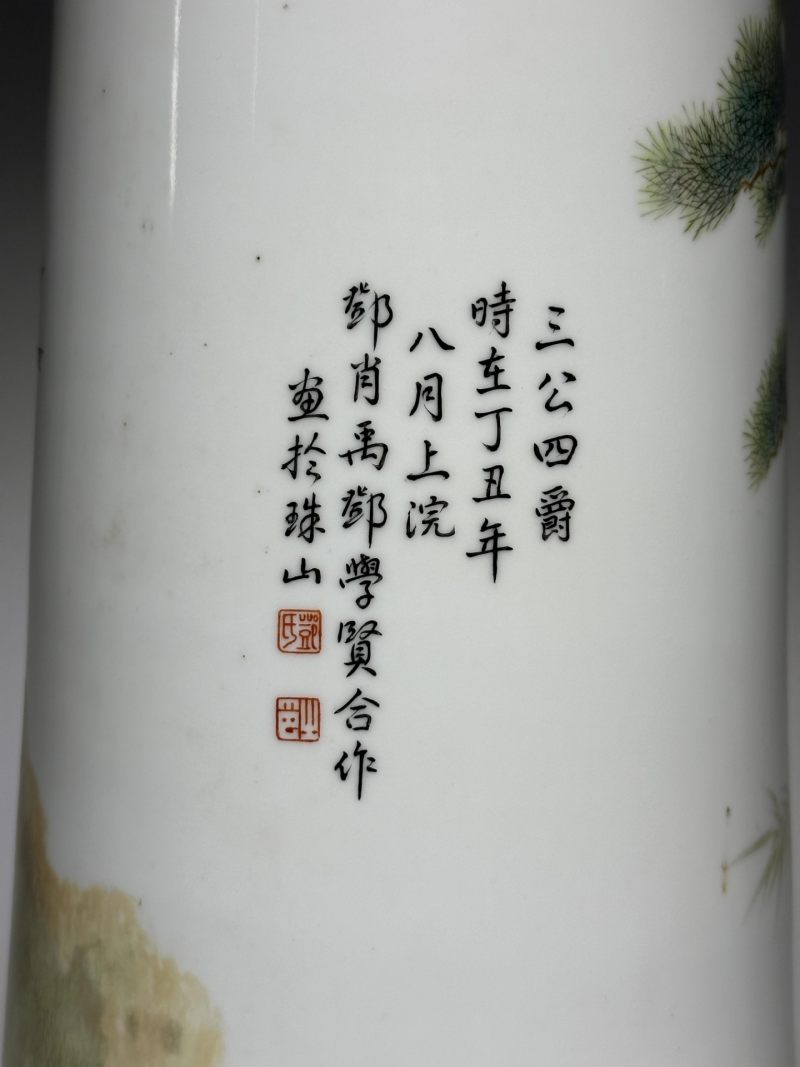 三公四爵
時在丁丑年
八月上浣
鄧肖禹鄧學賢合作
画於珠山
鄧氏